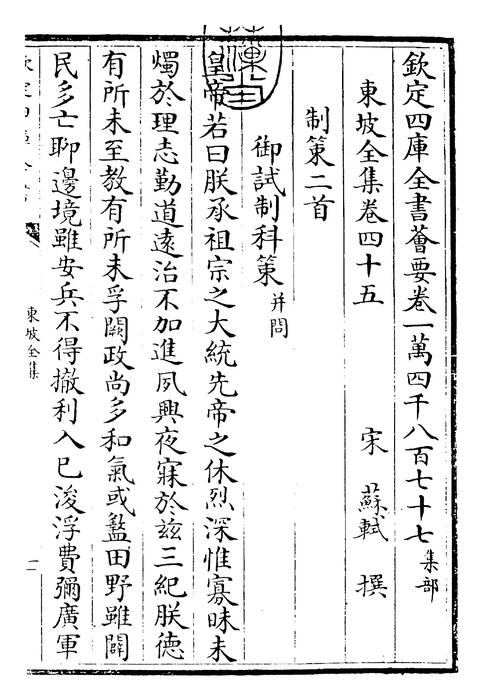 欽定四庫全書薈要卷一萬四千八百七十七集部
東坡全集卷四十五 宋 蘇軾 撰
制策二首
御試制科策并問
皇帝若曰朕承祖宗之大統先帝之休烈深惟寡昧未
燭於理志勤道遠治不加進夙興夜寐於兹三紀朕德
有所未至教有所未孚闕政尚多和氣或盭田野雖闢
民多亡聊邊境雖安兵不得撤利入已浚浮費彌廣軍
東坡全集